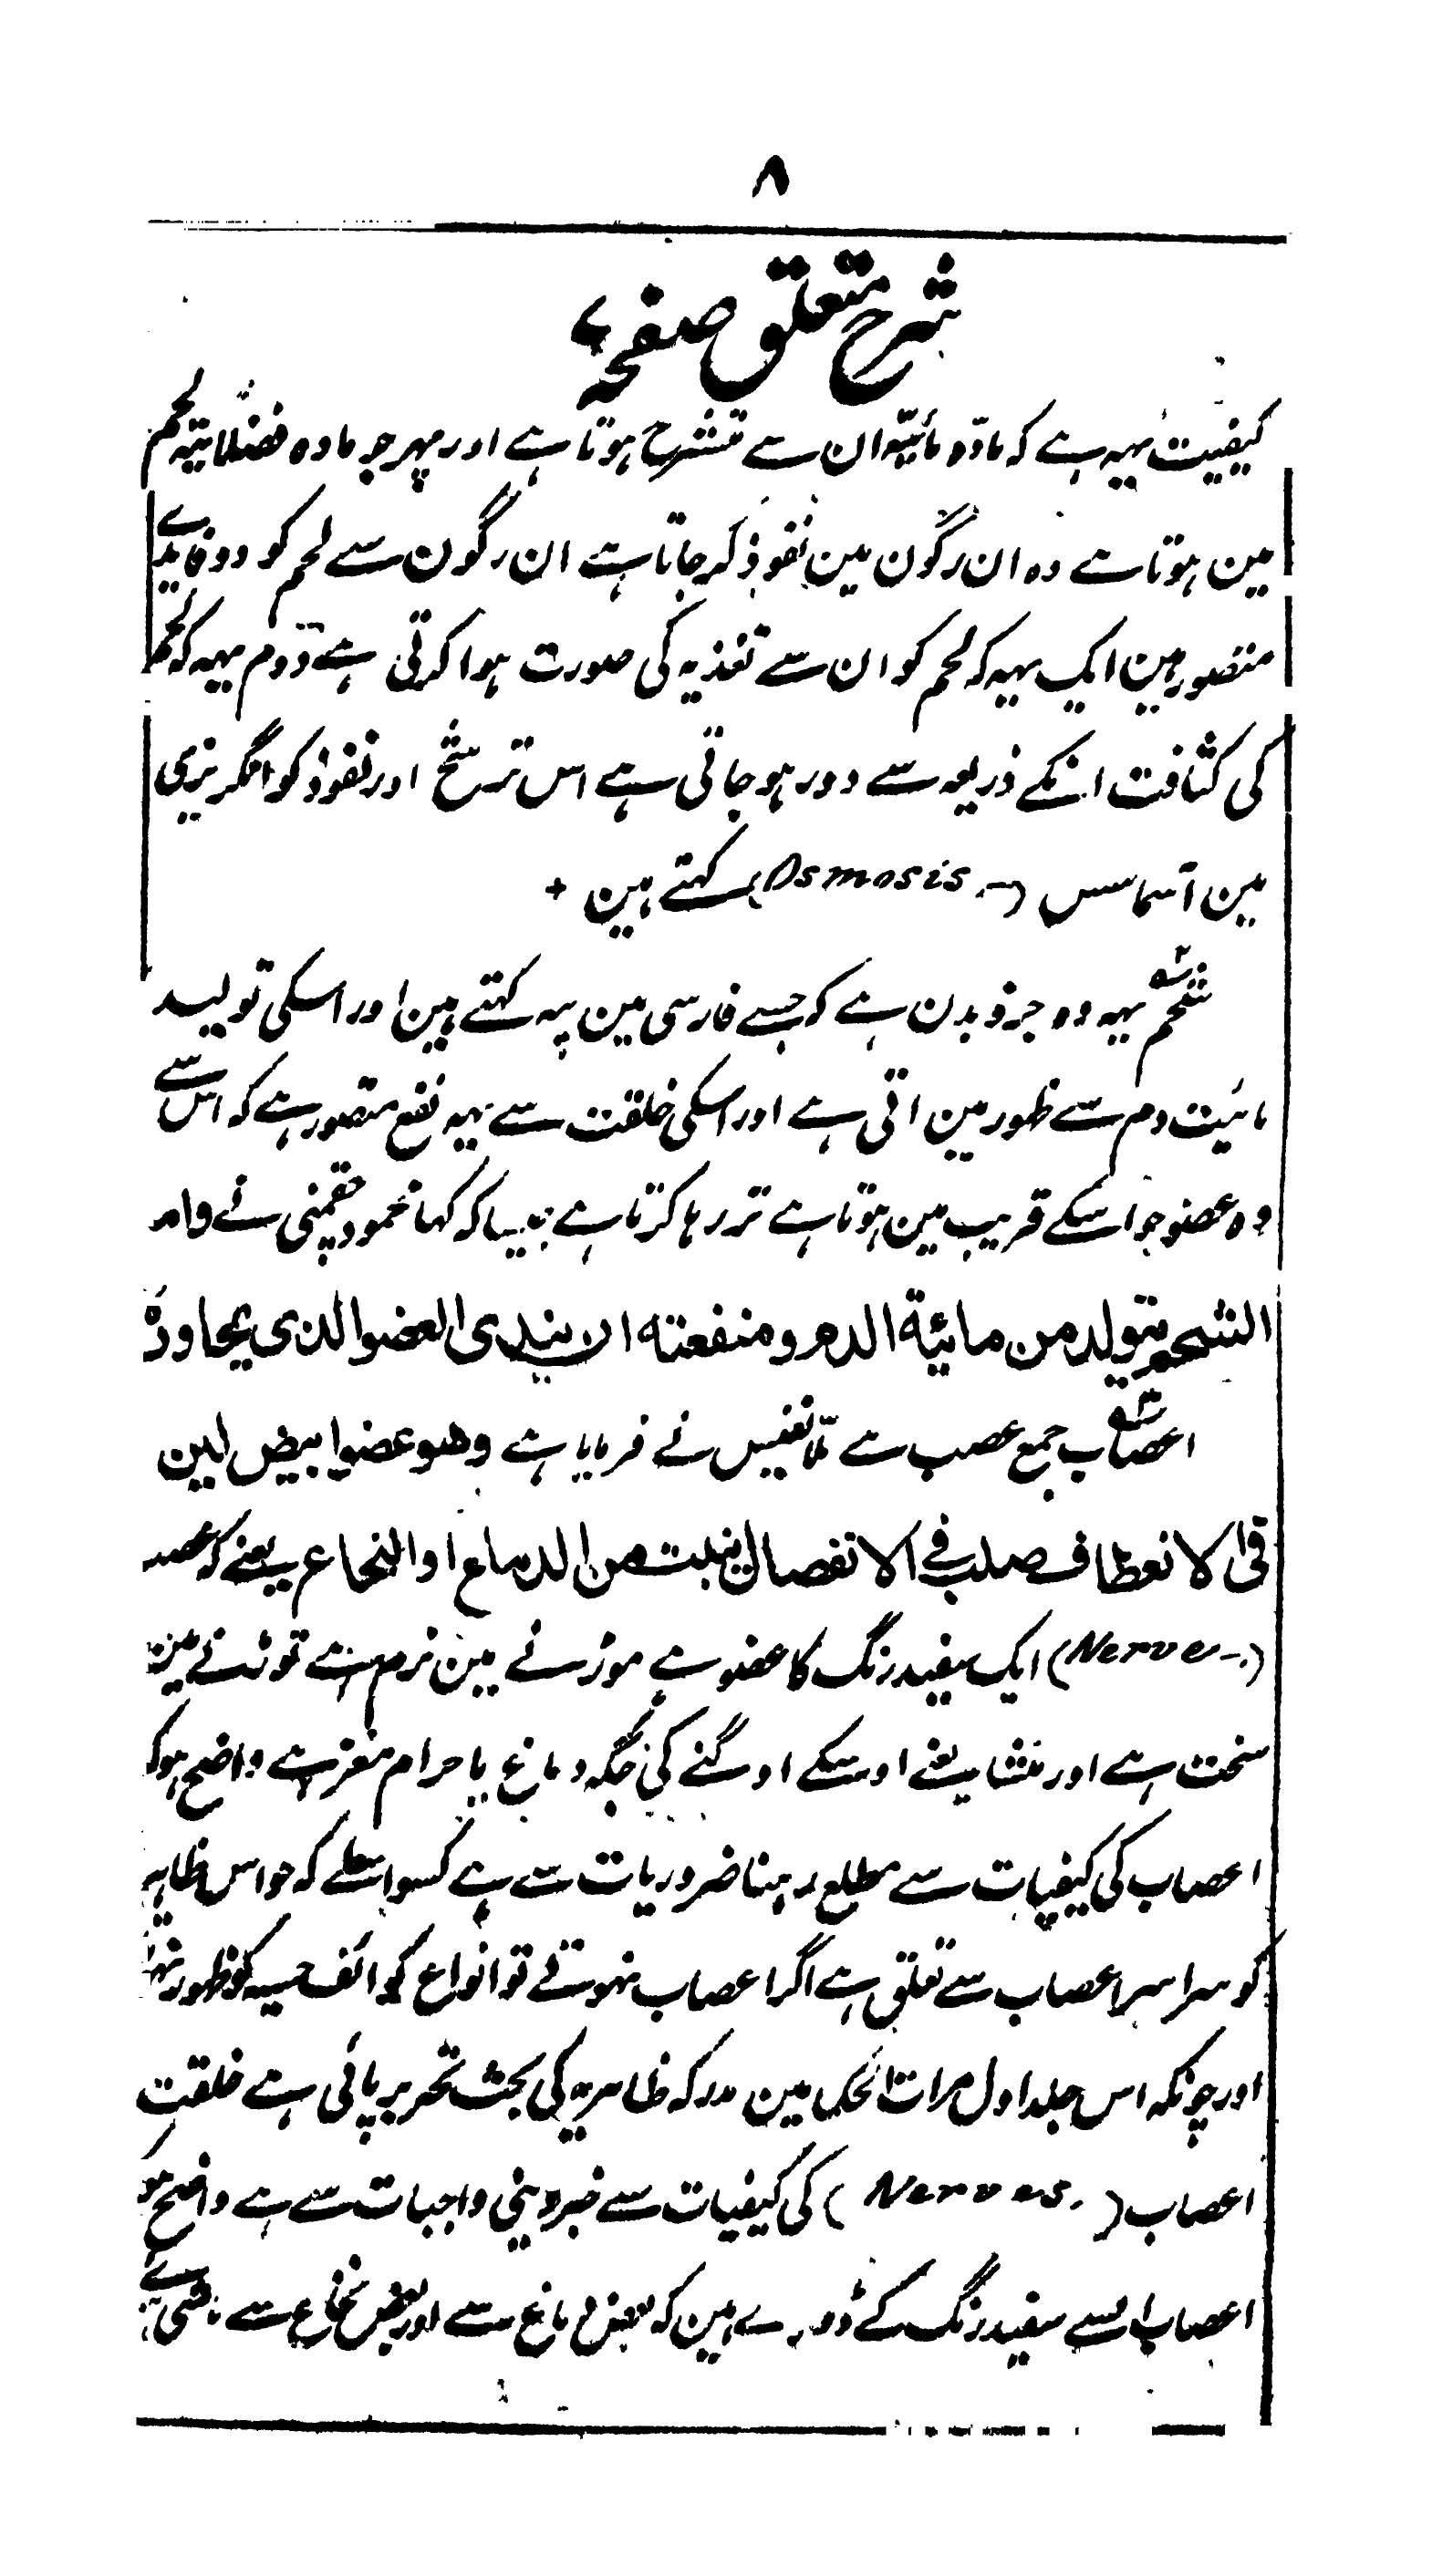 ۸
شرح متعلق صفحہ ۷
کیفیت یہہ ہے کہ مادّہ مائیّہ ان سے مترشح ہوتا ہے اور پہر جو مادہ فضلاتیہ لحم
مین ہوتا ہے وہ ان رگون مین نفوذ کر جاتا ہے ان رگون سے لحم کو دو فایدے
متصور ہین ایک یہہ کہ لحم کو ان سے تغذیہ کی صورت ہوا کرتی ہے دوم یہہ کہ لحم
کی کثافت انکے ذریعہ سے دور ہو جاتی ہے اس ترشح اور نفوذ کو انگریزی
مین آسماسس (Osmosis) کہتے ہین +
شحم یہہ وہ جزو بدن ہے کہ جسے فارسی مین پیہ کہتے ہین اور اسکی تولید
مائیت دم سے ظہور مین اتی ہے اور اسکی خلقت سے یہہ نفع متصور ہے کہ اس سے
وہ عضو جو اسکے قریب مین ہوتا ہے تر رہا کرتا ہے جیسا کہ کہا محمود چغمنی نے واما
الشحم یتولد من مائیة الدم ومنفعته ان یندی العضو الذی یجاورہ
اعصاب جمع عصب ہے ملّا نفیس نے فرمایا ہے وهو عضو ابیض لین
فی الانعطاف صلب فی الانفصال ینبت من الدماغ او النخاع یعنے کہ عصب
(Nerve) ایک سفید رنگ کا عضو ہے موڑنے مین نرم ہے توڑنے مین
سخت ہے اور منشا یعنے اوسکے اوگنے کی جگہ دماغ یا حرام مغز ہے واضح ہو کہ
اعصاب کی کیفیات سے مطلع رہنا ضروریات سے ہے کسواسطے کہ حواس ظاہریہ
کو سراسر اعصاب سے تعلق ہے اگر اعصاب نہوتے تو انواع کوائف حسیہ کو ظہور نہوتا
اور چونکہ اس جلد اول مرات الحکما مین مدرکہ ظاہریہ کی بحث تحریر پائی ہے خلقت
اعصاب (Nerves.) کی کیفیات سے خبر دینی واجبات سے ہے واضح ہو
اعصاب ایسے سفید رنگ کے ڈورے ہین کہ بعض دماغ سے اور بعض نخاع سے ناشی